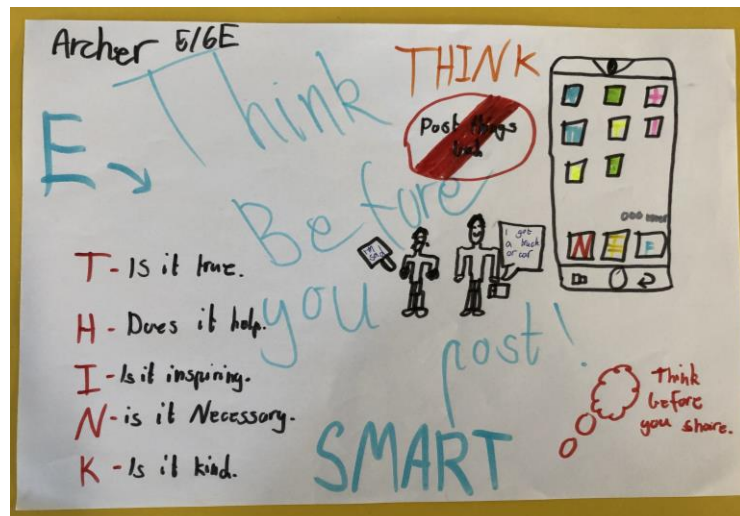 Archer 5/6E
E
Think
Before
you
post!
THINK
Post things
bad
I'm
sad
I got
a
or car
T - Is it true.
H - Does it help.
I - Is it inspiring.
N - is it Necessary.
K - Is it kind.
N I F
SMART
Think
before
you share.